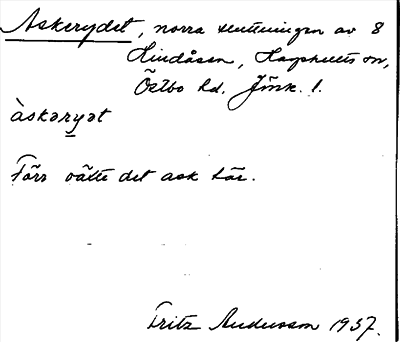 Askerydet, norra sluttningen av 8
Hindåsen, Kågeholts sn,
Östbo hd, Jönk. l.
àskəryət
Förr växte det ask här.
Fritz Andersson 1937.